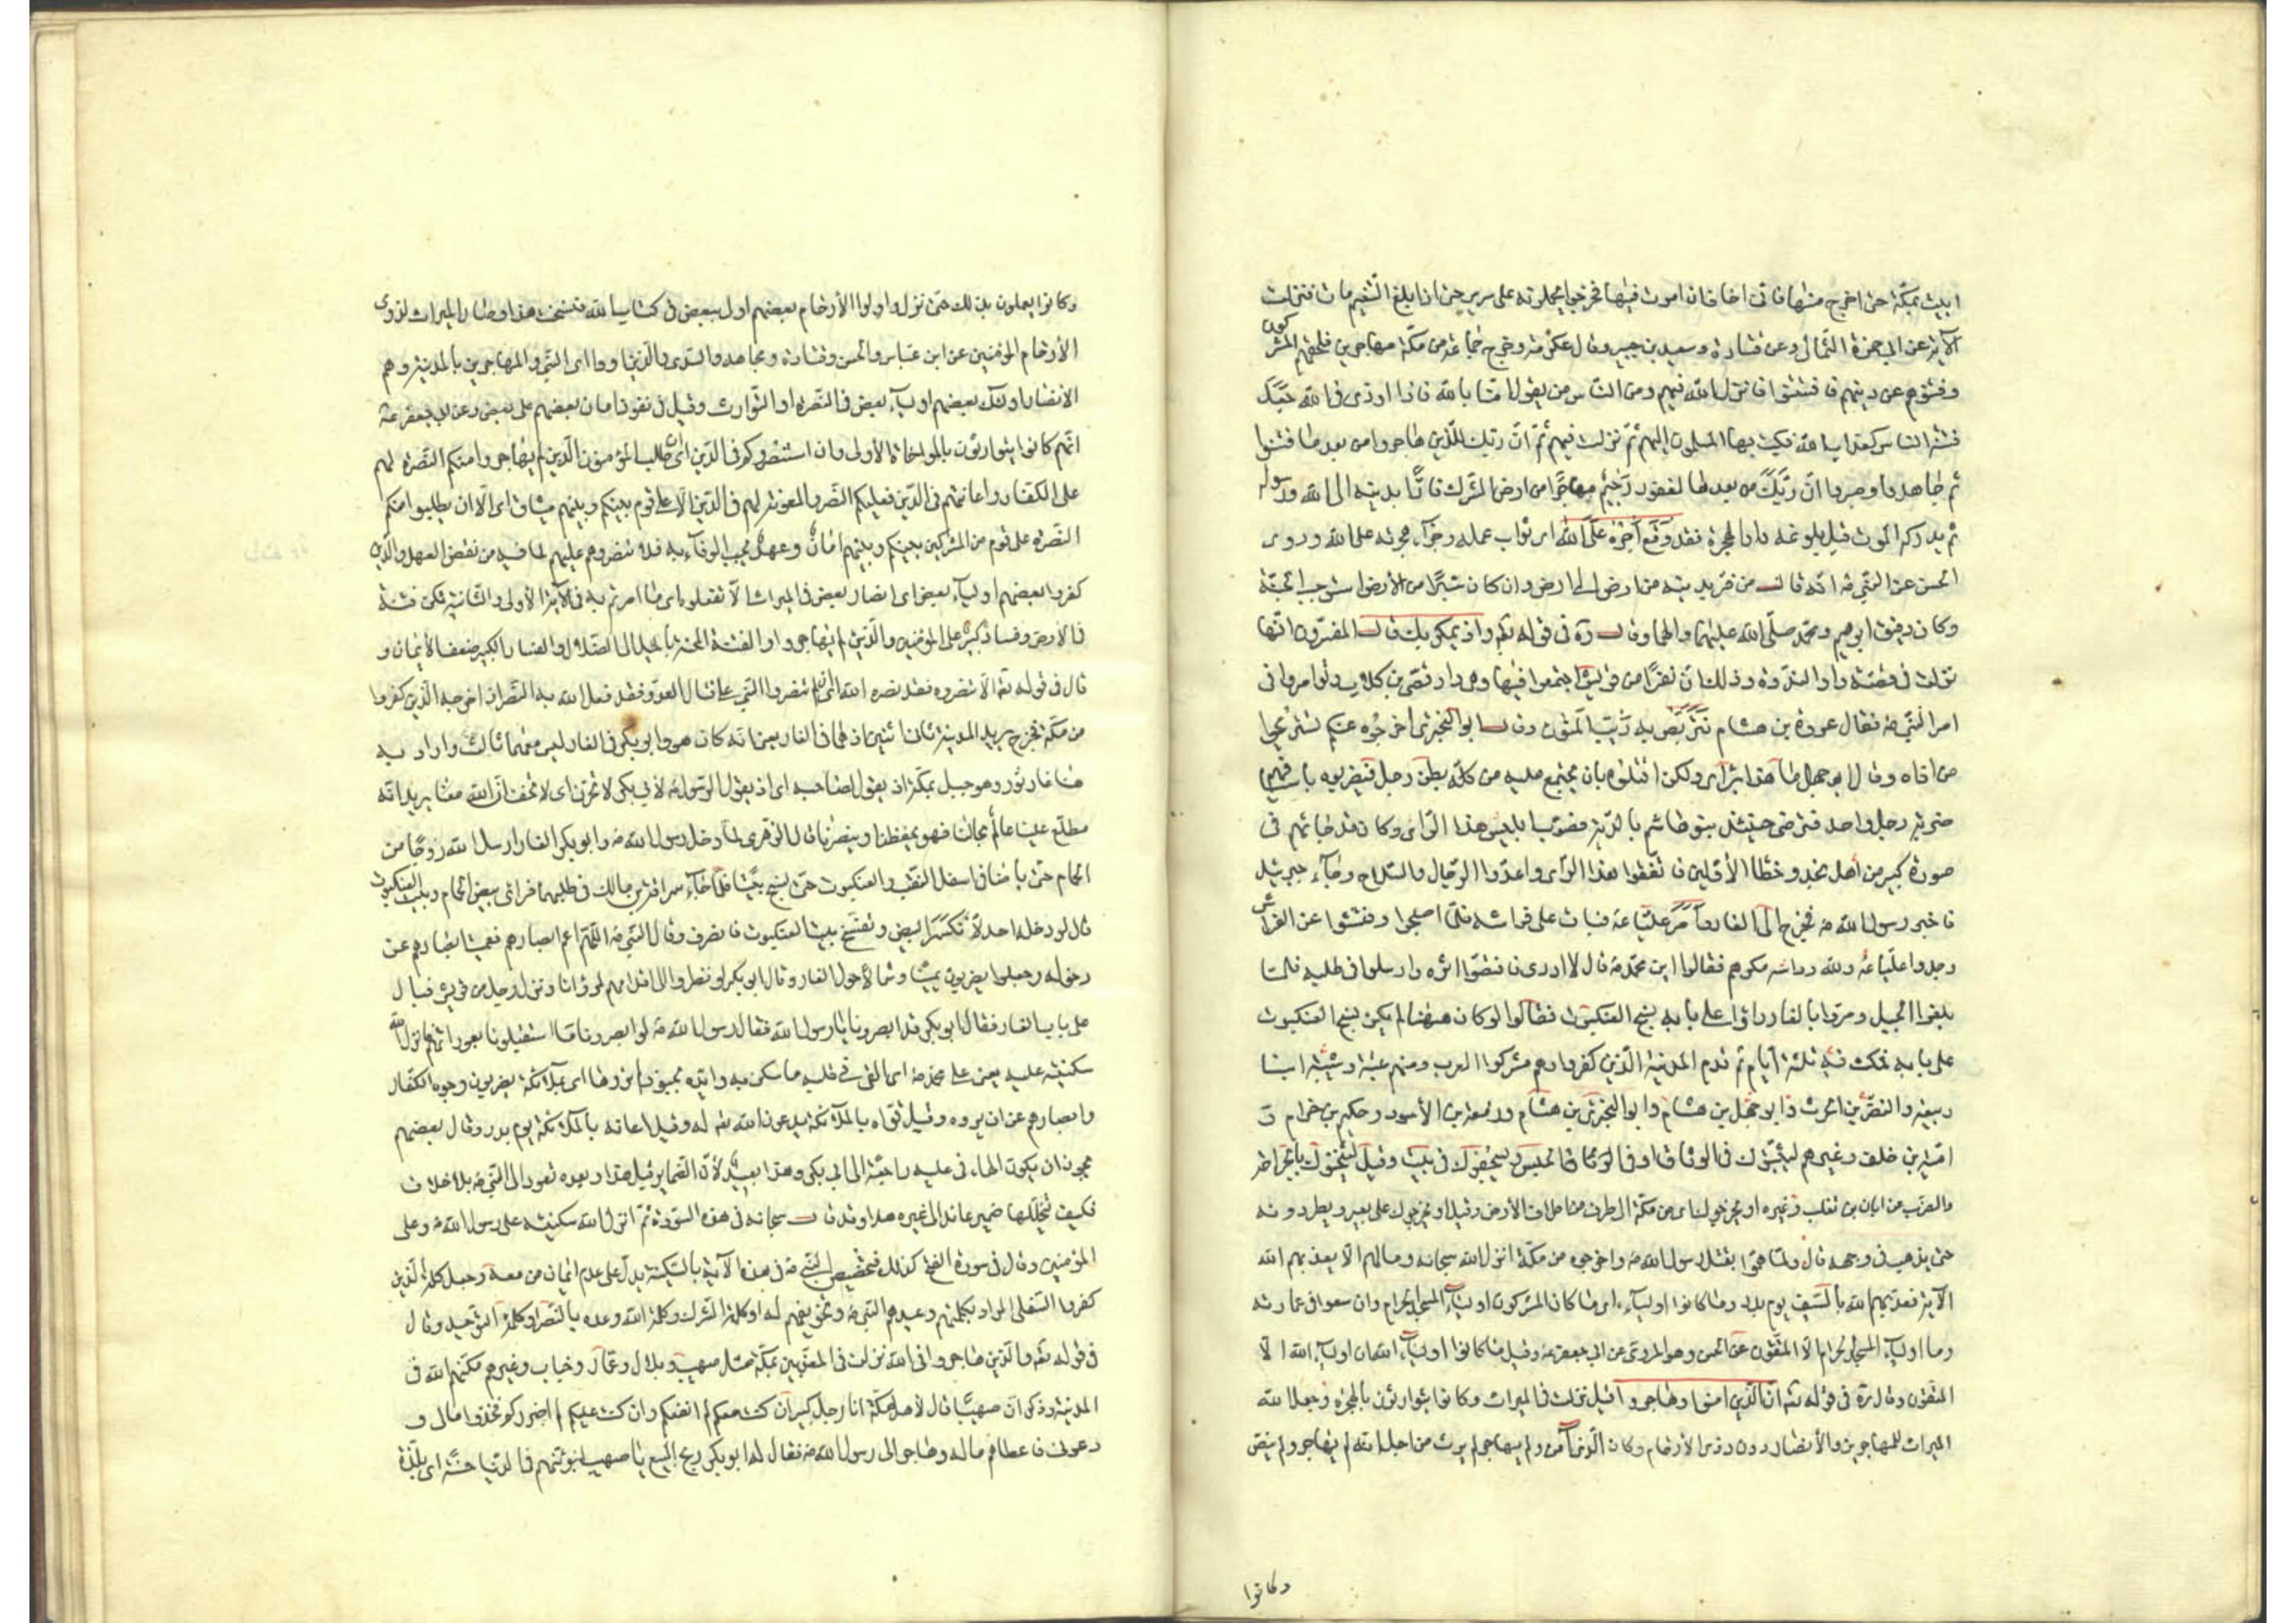 ابيت بمكّة حتّى اخرج منها فانّى اخاف ان اموت فيها فخرجوا يحملونه على سرير حتّى اذا بلغ التّنعيم مات فنزلت
الآية عن ابى حمزة الثّمالى وعن قتادة وسعيد بن جبير وقال عكرمة وخرج جماعة من مكّة مهاجرين فلحقهم المشركون
وفتنوهم عن دينهم فافتتنوا فانزل الله فيهم ومن النّاس من يقول امنّا بالله فاذا اوذى فى الله جعل
فتنة الناس كعذاب الله فكتب بها المسلمون اليهم ثمّ نزلت فيهم ثمّ انّ ربّك للّذين هاجروا من بعد ما فتنوا
ثم جاهدوا وصبروا انّ ربّك من بعدها لغفور رّحيم مهاجرا من ارض الشرك فارّا بدينه الى الله ورسوله
ثم يدركه الموت قبل بلوغه دار الهجرة فقد وقع اجره على الله اى ثواب عمله وجزآء هجرته على الله وروى
الحسن عن النبىّ ص انّه قال من فرّ بدينه من ارض الى ارض وان كان شبرًا من الأرض استوجب الجنّة
وكان رفيق ابرهيم ومحمّد صلّى الله عليهما والهما وقال ره فى قوله تعه واذ يمكر بك قال المفسّرون انّها
نزلت فى قصّة دار النّدوة وذلك انّ نفرًا من قريش اجتمعوا فيها وهى دار قصىّ بن كلاب وتوامروا فى
امر النّبى ص فقال عروة بن هشام نتربّص به ريب المنون وقال ابو البخترى اخرجوه عنكم تستريحوا
من اذاه وقال ابو جهل ما هذا براى ولكن اقتلوه بان يجتمع عليه من كلّ بطن رجل فيضربوه باسيافهم
ضربة رجل واحد فترضى حينئذ بنو هاشم بالدّية فصوّب ابليس هذا الرّاى وكان قد جائهم فى
صورة كبير من اهل نجد وخطّا الأوّلين فاتّفقوا هذا الراى واعدّوا الرّجال والسّلاح وجآء جبرئيل
فاخبر رسول الله ص فخرج الى الغار وامر عليّا ع فبات على فراشه فلمّا اصبحوا وفتشوا عن الفراش
وجدوا عليّا ع وقد ردّ الله مكرهم فقالوا اين محمّد ص قال لا ادرى فاقتصّوا اثره وارسلوا فى طلبه فلمّا
بلغوا الجبل ومرّوا بالغار راوا على بابه نسج العنكبوت فقالوا لو كان هيهنا لم يكن نسج العنكبوت
على بابه فمكث فيه ثلثة ايّام ثم قدم المدينة الّذين كفروا وهم مشركوا العرب ومنهم عتبة وشيبة ابنا
ربيعة والنضر بن الحرث وابو جهل بن هشام وابو البخترى بن هشام وزمعة بن الأسود وحكيم بن حزام و
اميّة بن خلف وغيرهم ليثبتوك فى الوثاق او فى الوثاق والحبس ويسجنوك فى بيت وقيل ليثخنوك بالجراحة
والضرب عن ابان بن تغلب وغيره او يخرجوك اى من مكّة الى طرف من اطراف الأرض وقيل او يخرجوك على بعير ويطردونه
حتى يذهب فى وجهه قال ولمّا همّوا بقتل رسول الله ص واخرجوه من مكّة انزل الله سبحانه ومالهم الّا يعذبهم الله
الآية فعذّبهم الله بالسّيف يوم بدر وما كانوا اوليآءه اى ما كان المشركون اوليآء المسجد الحرام وان سعوا فى عمارته
وما اوليآء المسجد الحرام الّا المتّقون عن الحسن وهو المروى عن ابى جعفر ع وقيل ما كانوا اوليآء الله ان اوليآء الله الّا
المتّقون وقال ره فى قوله تعه انّ الّذين امنوا وهاجروا قيل نزلت فى الميراث وكانوا يتوارثون بالهجرة وجعل الله
الميراث للمهاجرين والأنصار دون ذوى الأرحام وكان الّذى آمن ولم يهاجر لم يرث من اجل انّه لم يهاجر ولم ينصر
وكانوا
وكانوا يعملون بذلك حتّى نزل واولوا الأرحام بعضهم اولى ببعض فى كتاب الله فنسخت هذا وصار الميراث لذوى
الأرحام المؤمنين عن ابن عبّاس والحسن وقتادة ومجاهد والسّدى والّذين اووا اى النّبى والمهاجرين بالمدينة وهم
الانصار اولئك بعضهم اوليآء بعض فى النّصرة او التّوارث وقيل فى نفوذ امان بعضهم على بعض وعن ابى جعفر ع
انّهم كانوا يتوارثون بالمواخاة الأولى وان استنصروكم فى الدّين اى طلب المؤمنون الّذين لم يهاجروا منكم النّصرة لهم
على الكفّار واعانتهم فى الدّين فعليكم النّصر والمعونة لهم فى الدّين الّا على قوم بينكم وبينهم ميثاق اى الّا ان يطلبوا منكم
النّصرة على قوم من المشركين بينكم وبينهم امان وعهد يجب الوفآء به فلا تنصروهم عليهم لما فيه من نقض العهد والّذين
كفروا بعضهم اوليآء بعض اى انصار بعض فى الميراث الّا تفعلوه اى ما امرتم به فى الآية الأولى والثّانية تكن فتنة
فى الأرض وفساد كبير على المؤمنين والّذين لم يهاجروا والفتنة المحنة بالميل الى الضّلال والفساد الكبير ضعف الأيمان و
قال فى قوله تعه الّا تنصروه فقد نصره الله اى ان لم تنصروا النّبى على قتال العدو فقد فعل الله به النّصر اذ اخرجه الّذين كفروا
من مكّة فخرج يريد المدينة ثانى اثنين اذ هما فى الغار يعنى انّه كان هو وابو بكر فى الغار ليس معهما ثالث واراد به
هنا غار ثور وهو جبل بمكّة اذ يقول لصاحبه اى اذ يقول الرّسول ص لأبى بكر لا تحزن اى لا تخف انّ الله معنا يريد انّه
مطّلع علينا عالم بحالنا فهو يحفظنا وينصرنا قال الزّهرى لمّا دخل رسول الله ص وابو بكر الغار ارسل الله زوجًا من
الحمام حتّى باضا فى اسفل النّقب والعنكبوت حتّى نسج بيتًا فلمّا جآء سراقة بن مالك فى طلبهما فراى بيض الحمام وبيت العنكبوت
قال لو دخله احد لانكسر البيض وتفسّخ بيت العنكبوت فانصرف وقال النّبى ص اللّهمّ اعم ابصارهم فعميت ابصارهم عن
دخوله وجعلوا يضربون يمينًا وشمالًا حول الغار وقال ابو بكر لو نظروا الى اقدامهم لراونا ونزل رجل من قريش فبال
على باب الغار فقال ابو بكر قد ابصرونا يا رسول الله فقال رسول الله ص لو ابصرونا ما استقبلونا بعوراتهم فانزل الله
سكينته عليه يعنى على محمد ص اى القى فى قلبه ما سكن به وايّده بجنود لم تروها اى بملآئكة يضربون وجوه الكفّار
وابصارهم عن ان يروه وقيل قوّاه بالملآئكة يدعون الله تعه له وقيل اعانه بالملآئكة يوم بدر وقال بعضهم
يجوز ان يكون الهاء فى عليه راجعة الى ابى بكر وهذا بعيد لأنّ الضّماير قبل هذا وبعده تعود الى النّبى ص بلا خلاف
فكيف تتخلّلها ضمير عائد الى غيره هذا وقد قال سبحانه فى هذه السّورة ثمّ انزل الله سكينته على رسول الله ص وعلى
المؤمنين وقال فى سورة الفتح كذلك فتخصيص النّبى ص فى هذه الآية بالسّكينة يدلّ على عدم ايمان من معه وجعل كلمة الّذين
كفروا السّفلى المراد بكلمتهم وعيدهم النّبى ص وتخويفهم له او كلمة الشّرك وكلمة الله وعده بالنّصر او كلمة التّوحيد وقال
فى قوله تعه والّذين هاجروا فى الله نزلت فى المعذّبين بمكّة مثل صهيب وبلال وعمّار وخباب وغيرهم مكّنهم الله فى
المدينة وذكر انّ صهيبًا قال لأهل مكّة انا رجل كبير ان كنت معكم لم انفعكم وان كنت عليكم لم اضرركم فخذوا مالى و
دعونى فاعطاهم ماله وهاجر الى رسول الله ص فقال له ابو بكر ربح البيع يا صهيب لنبوّئنّهم فى الدّنيا حسنة اى بلدة